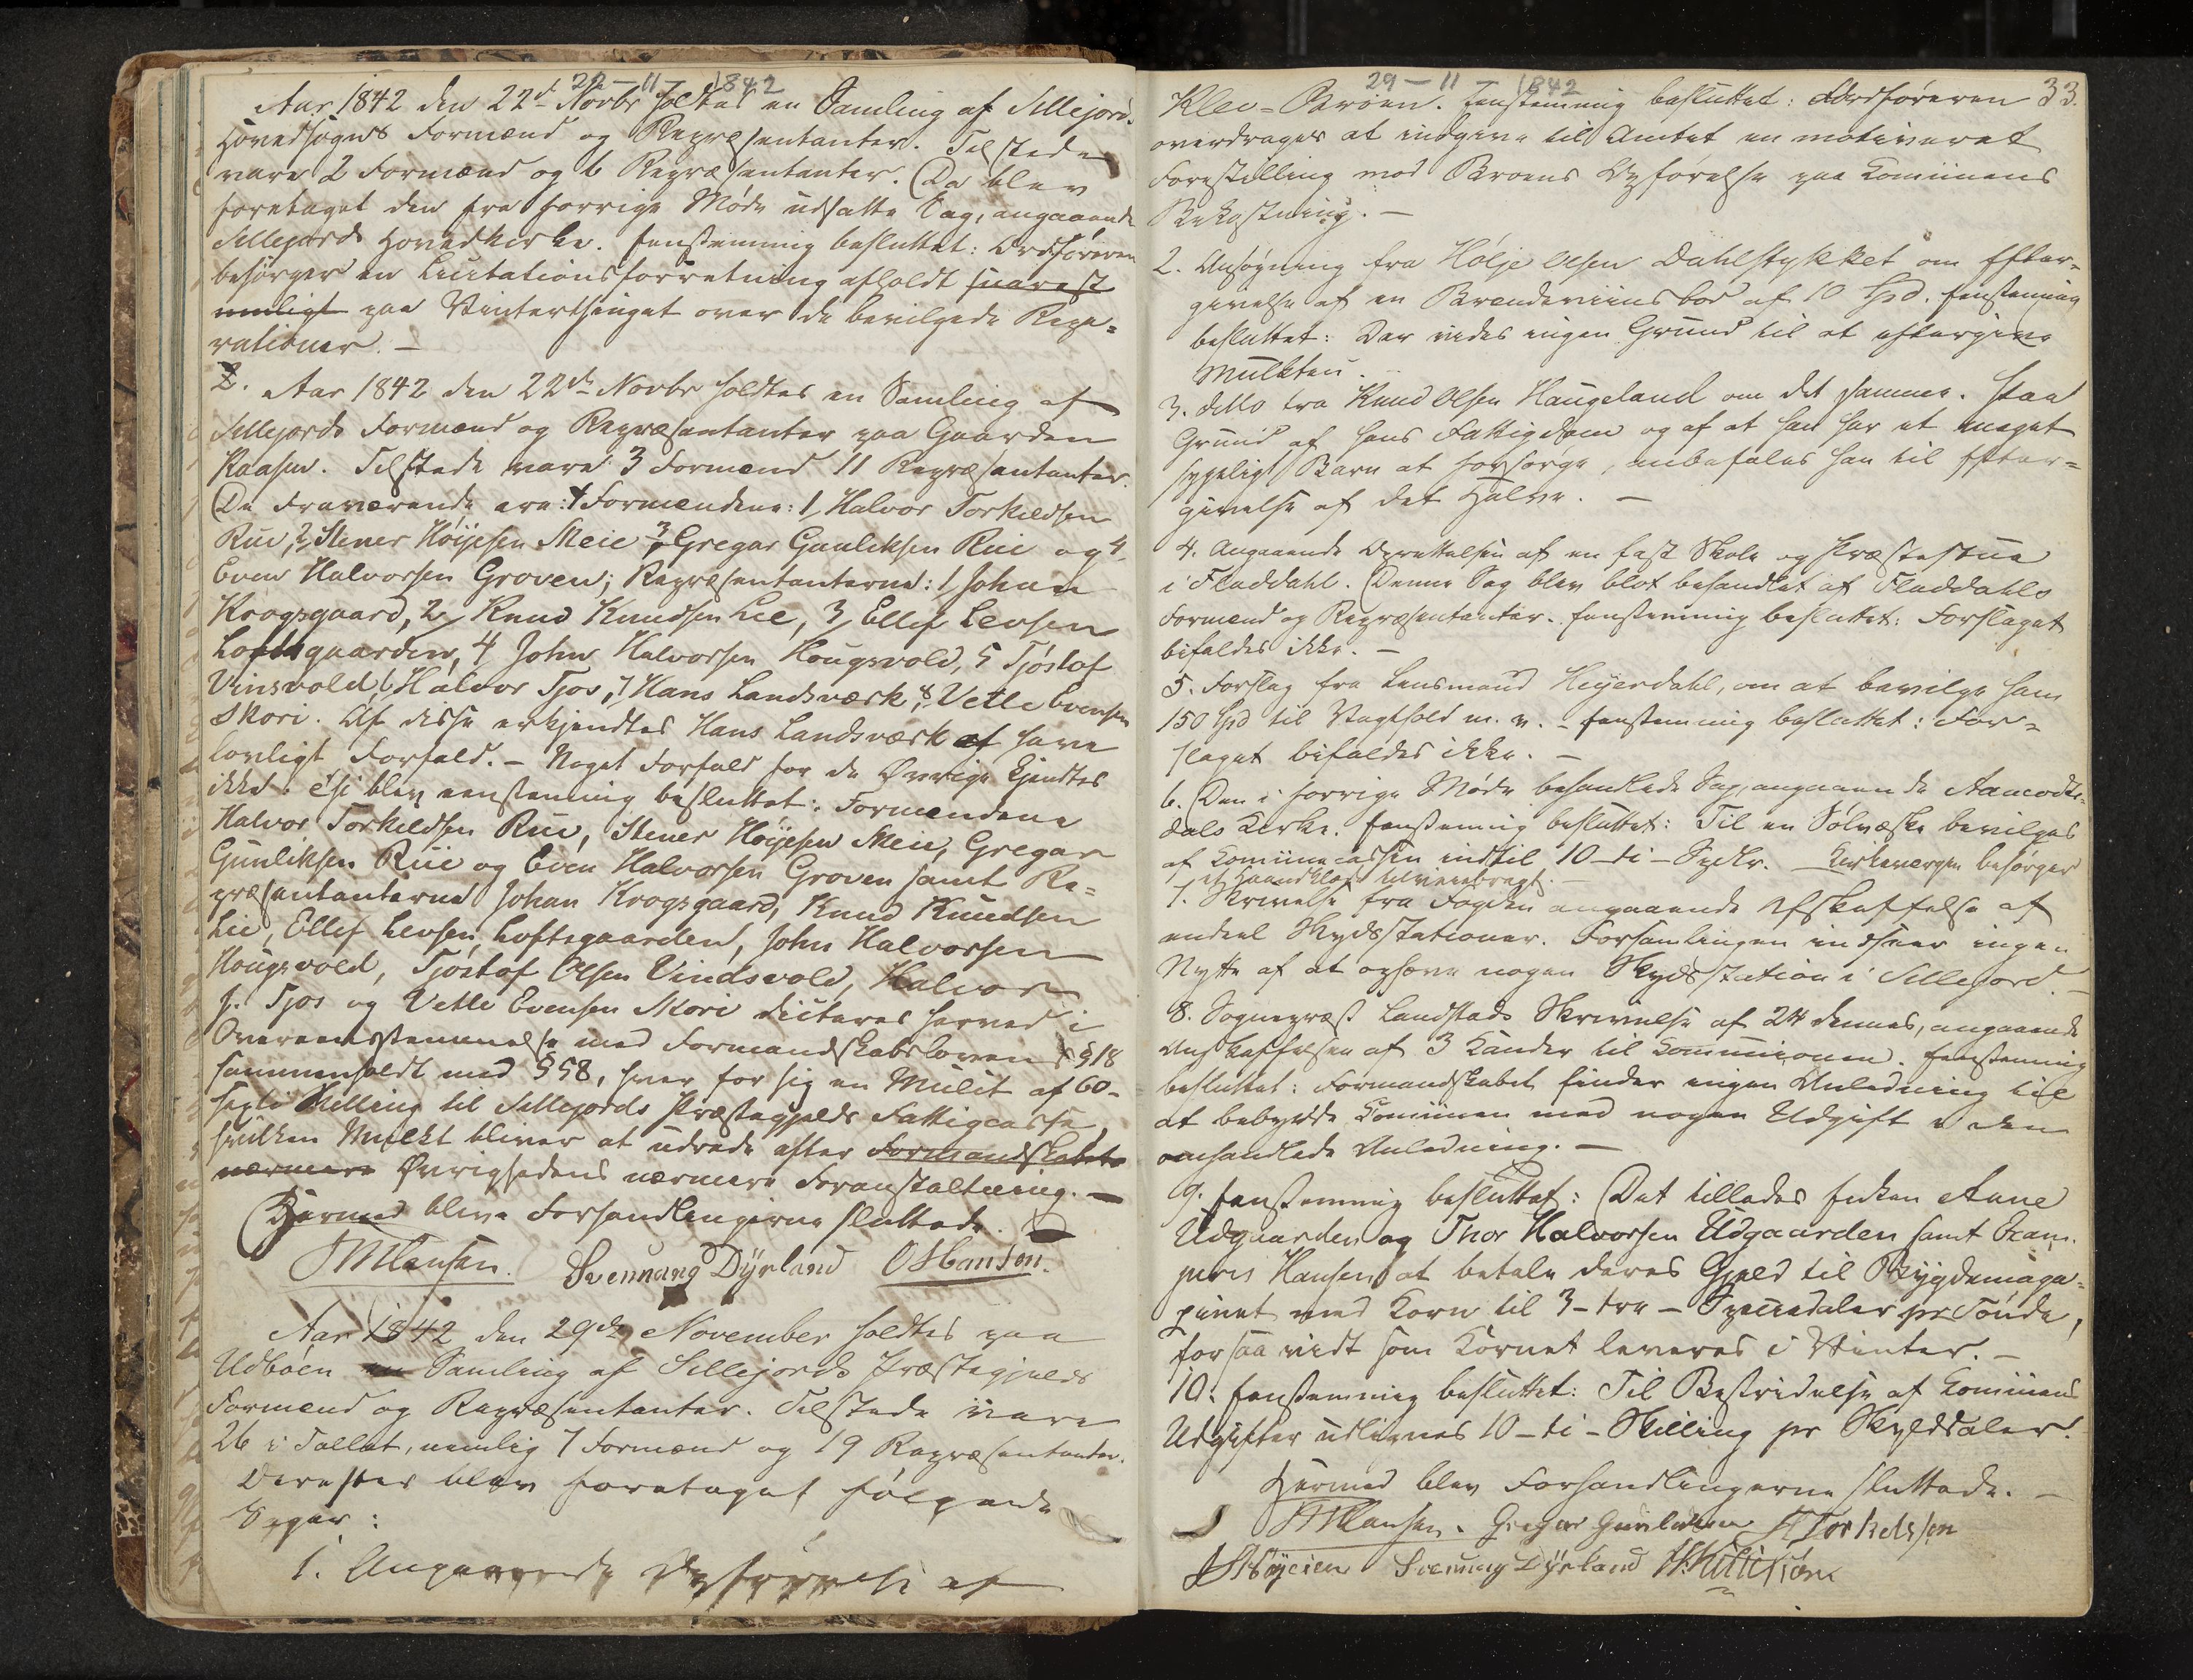 22 – 11 – 1842
Aar 1842 den 22de Novbr holdtes en Samling af Sillejords
Hovedsogns Formænd og Repræsentanter. Tilstede
vare 2 Formænd og 6 Repræsentanter. Da blev
foretaget den fra forrige Møde udsatte Sag, angaaende
Sillejords Hovedkirke. Eenstemmig besluttet: Ordføreren
besørger en Licitationsforretning afholdt snarest
muligt paa Vinterthinget over de bevilgede Repa=
rationer. –
2. Aar 1842 den 22de Novbr holdtes en Samling af
Sillejords Formænd og Repræsentanter paa Gaarden
Kaasen. Tilstede vare 3 Formænd 11 Repræsentanter.
De Fraværende ere: Formændene: 1, Halvor Torkildsen
Rue, 2, Stener Höijesen Meie 3, Gregar Gunliksen Rue og 4,
Even Halvorsen Groven; Repræsentanterne: 1, Johan
Krogsgaard, 2, Knud Knudsen Lie, 3, Ellef Levsen
Loftsgaarden, 4 John Halvorsen Hougsvold, 5 Tjöstof
Vinsvold, 6 Halvor Tjos, 7 Hans Landsværk, 8, Vetle Evensen
Skori. Af disse erkjendtes Hans Landsværk at have
lovligt Forfald. – Noget Forfald for de Øvrige kjendtes
ikke: thi blev eenstemmig besluttet: Formændene
Halvor Torkildsen Rue, Stener Höijesen Meie, Gregar
Gunliksen Rue og Even Halvorsen Groven samt Re=
præsentanterne Johan Krogsgaard, Knud Knudsen
Lie, Ellef Levsen Loftsgaarden, John Halvorsen
Hougsvold, Tjöstof Olsen Vindsvold, Halvor
J. Tjos og Vetle Evensen Skori dicteres herved i
Overeensstemmelse med Formandskabsloven § 18
sammenholdt med § 58, hver for sig en Mulct af 60-
sexti Skilling til Sillejords Præstegjelds Fattigcasse,
hvilken Mulkt bliver at udrede efter Formandskabets
nærmere Øvrighedens nærmere Foranstaltning. –
Hermed bleve Forhandlingerne sluttede.
JMHansen. Svennung Dÿrland OHansen.
Aar 1842 den 29de November holdtes paa
Udbøen en Samling af Sillejords Præstegjelds
Formænd og Repræsentanter. Tilstede vare
26 i Tallet, nemlig 7 Formænd og 19 Repræsentanter.
Derefter blev foretaget følgende
Sager:
1. Angaaende Opførelse af
29 – 11 – 1842
33.
Klev=Broen. Eenstemmig besluttet: Ordføreren
overdrages at indgive til Amtet en motiveret
Forestilling mod Broens Opførelse paa Communens
Bekostning. –
2. Ansøgning fra Hölje Olsen Dahlstykket om Efter=
givelse af en Brændeviinsbod af 10 Spd. Eenstemmig
besluttet: Der vides ingen Grund til at eftergive
Mulkten.
3. ditto fra Knud Olsen Haugeland om det samme. Paa
Grund af hans Fattigdom og af at han har et meget
sygeligt Barn at forsørge, anbefales han til Efter=
givelse af det Halve. –
4. Angaaende Oprettelsen af en fast Skole og Præstestue
i Fladdahl. Denne Sag blev blot behandlet af Fladdahls
Formænd og Repræsentanter. Eenstemmig besluttet: Forslaget
bifaldes ikke. –
5. Forslag fra Lensmand Heyerdahl, om at bevilge ham
150 Spd til Vagthold m. v. – Eenstemmig besluttet: For=
slaget bifaldes ikke. –
6. Den i forrige Møde behandlede Sag, angaaende Aamods=
dals Kirke. Eenstemmig besluttet: Til en Sølvæske bevilges
af Communecassen indtil 10-ti-Spdlr. Kirkeværgen besørger
et Haandklæde tilveiebragt. –
7. Skrivelse fra Fogden angaaende Afskaffelse af
endeel Skydsstationer. Forsamlingen indseer ingen
Nytte af at ophæve nogen Skydsstation i Sillejord. –
8. Sognepræst Landstads Skrivelse af 24 dennes, angaaende
Anskaffelsen af 3 Kander til Communionen. Eenstemmig
besluttet: Formandskabet finder ingen Anledning til
at bebyrde Communen med nogen Udgift i den
omhandlede Anledning. –
9. Eenstemmig besluttet: Det tillades Enken Anne
Udgaarden og Thor Halvorsen Udgaarden samt Exam.
juris Hansen at betale deres Gjeld til Bygdemaga=
zinet med Korn til 3-tre-Speciedaler pr Tönde,
forsaavidt som Kornet leveres i Vinter. –
10. Eenstemmig besluttet: Til Bestridelse af Communens
Udgifter udlignes 10-ti-Skilling pr Skylddaler.
Hermed blev Forhandlingerne sluttede. –
JMHansen. Gregar Gunleiksen H Torkelssen
Svennung Dÿrland